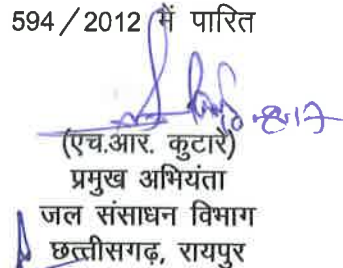 594/2012 में पारित
(एच.आर. कुटारे)
प्रमुख अभियंता
जल संसाधन विभाग
छत्तीसगढ़, रायपुर